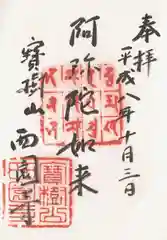 奉拝
平成八年十月三日
阿弥陀如来
寶樹山
西園寺